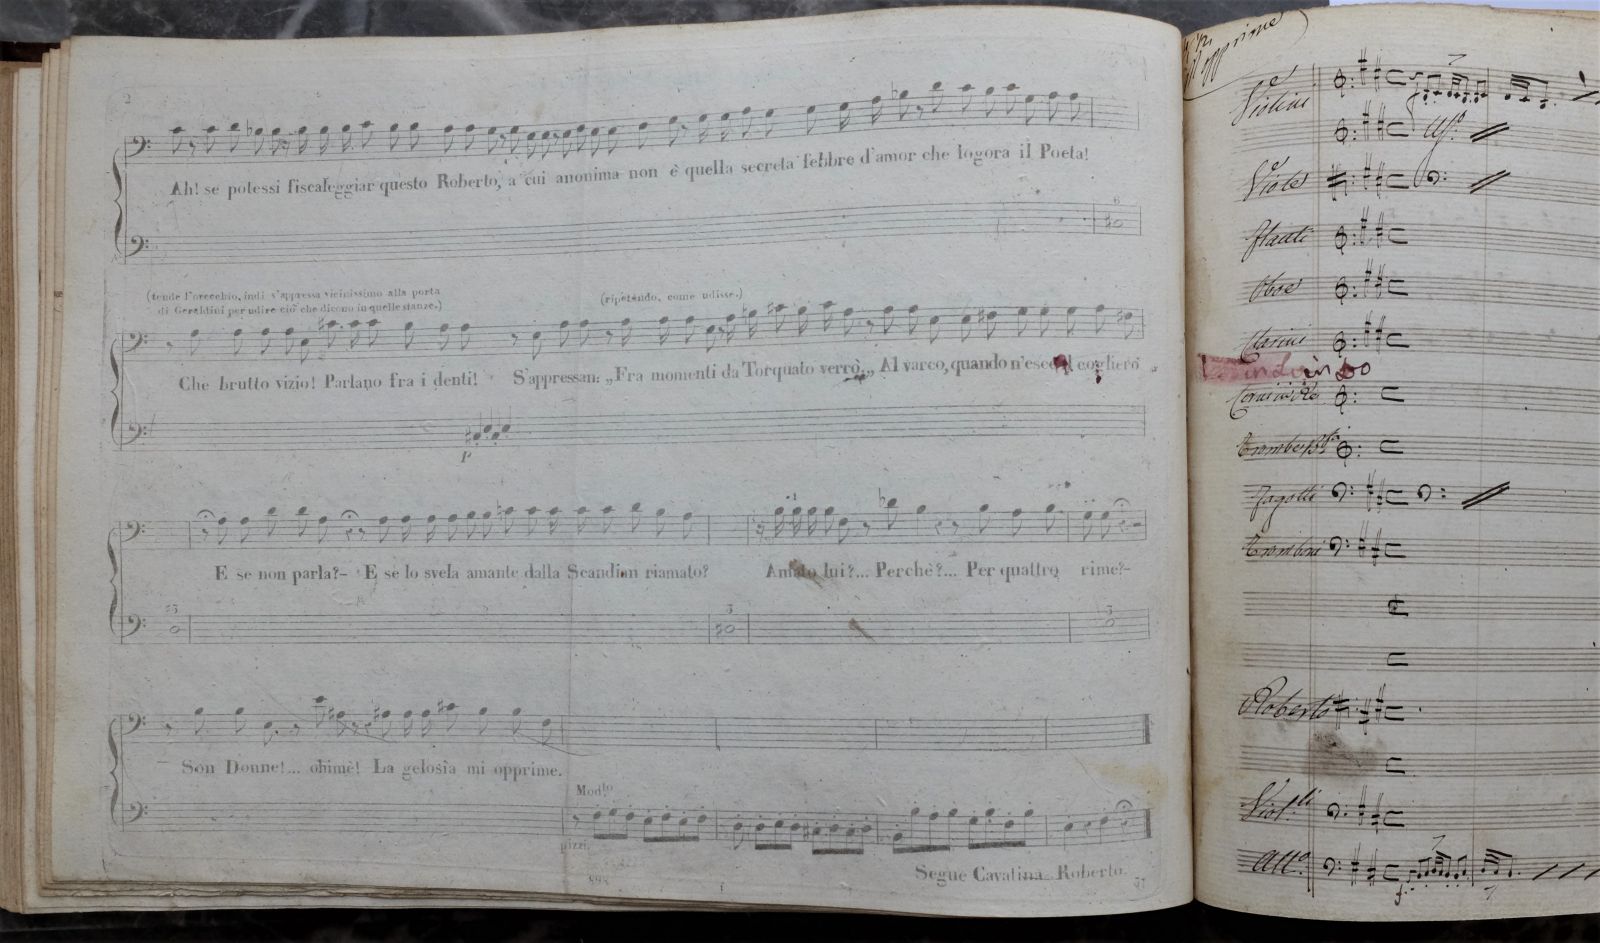 2
Ah! se potessi fiscaleggiar questo Roberto, a cui anonima non è quella secreta febbre d'amor che logora il Poeta!
6
(tende l'orecchio, indi s'appressa vicinissimo alla porta
di Geraldini per udire ciò che dicono in quelle stanze.)
(ripetendo, come udisse.)
Che brutto vizio! Parlano fra i denti! S'appressan: „Fra momenti da Torquato verrò.„ Al varco, quando n'esce il coglierò
P
E se non parla?– E se lo svela amante dalla Scandian riamato? Amato lui?... Perchè?... Per quattro rime?–
3
3
3
Son Donne!... ohimè! La gelosìa mi opprime.
Mod.to
pizzi.
Segue Cavatina Roberto.
57
opprime
Violini
Uss.
Viole
Flauti
Oboe
Clarini
Corni in Re
Trombe
Fagotti
Tromboni
Roberto
Viol.lli
All.o